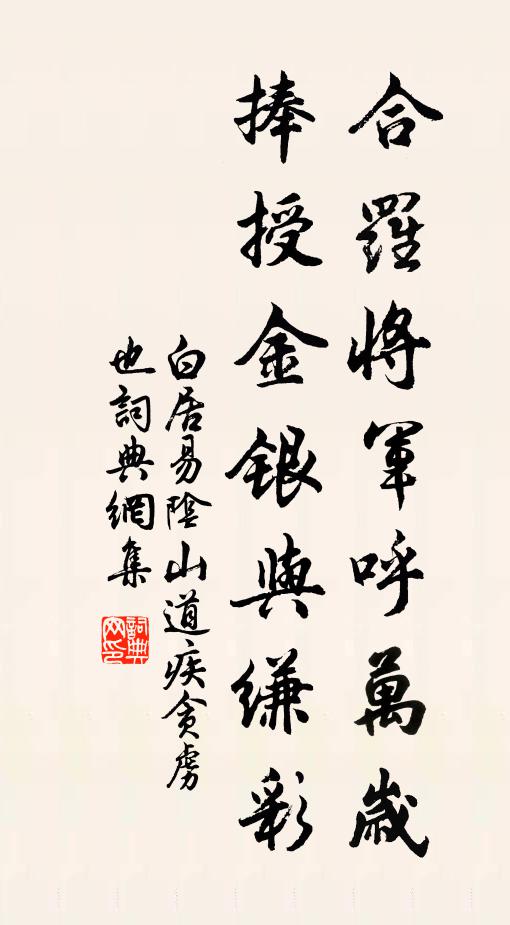 合羅將軍呼萬歲
捧授金銀與縑彩
白居易陰山道疾貪虜
也詞典網集
詞典
网印